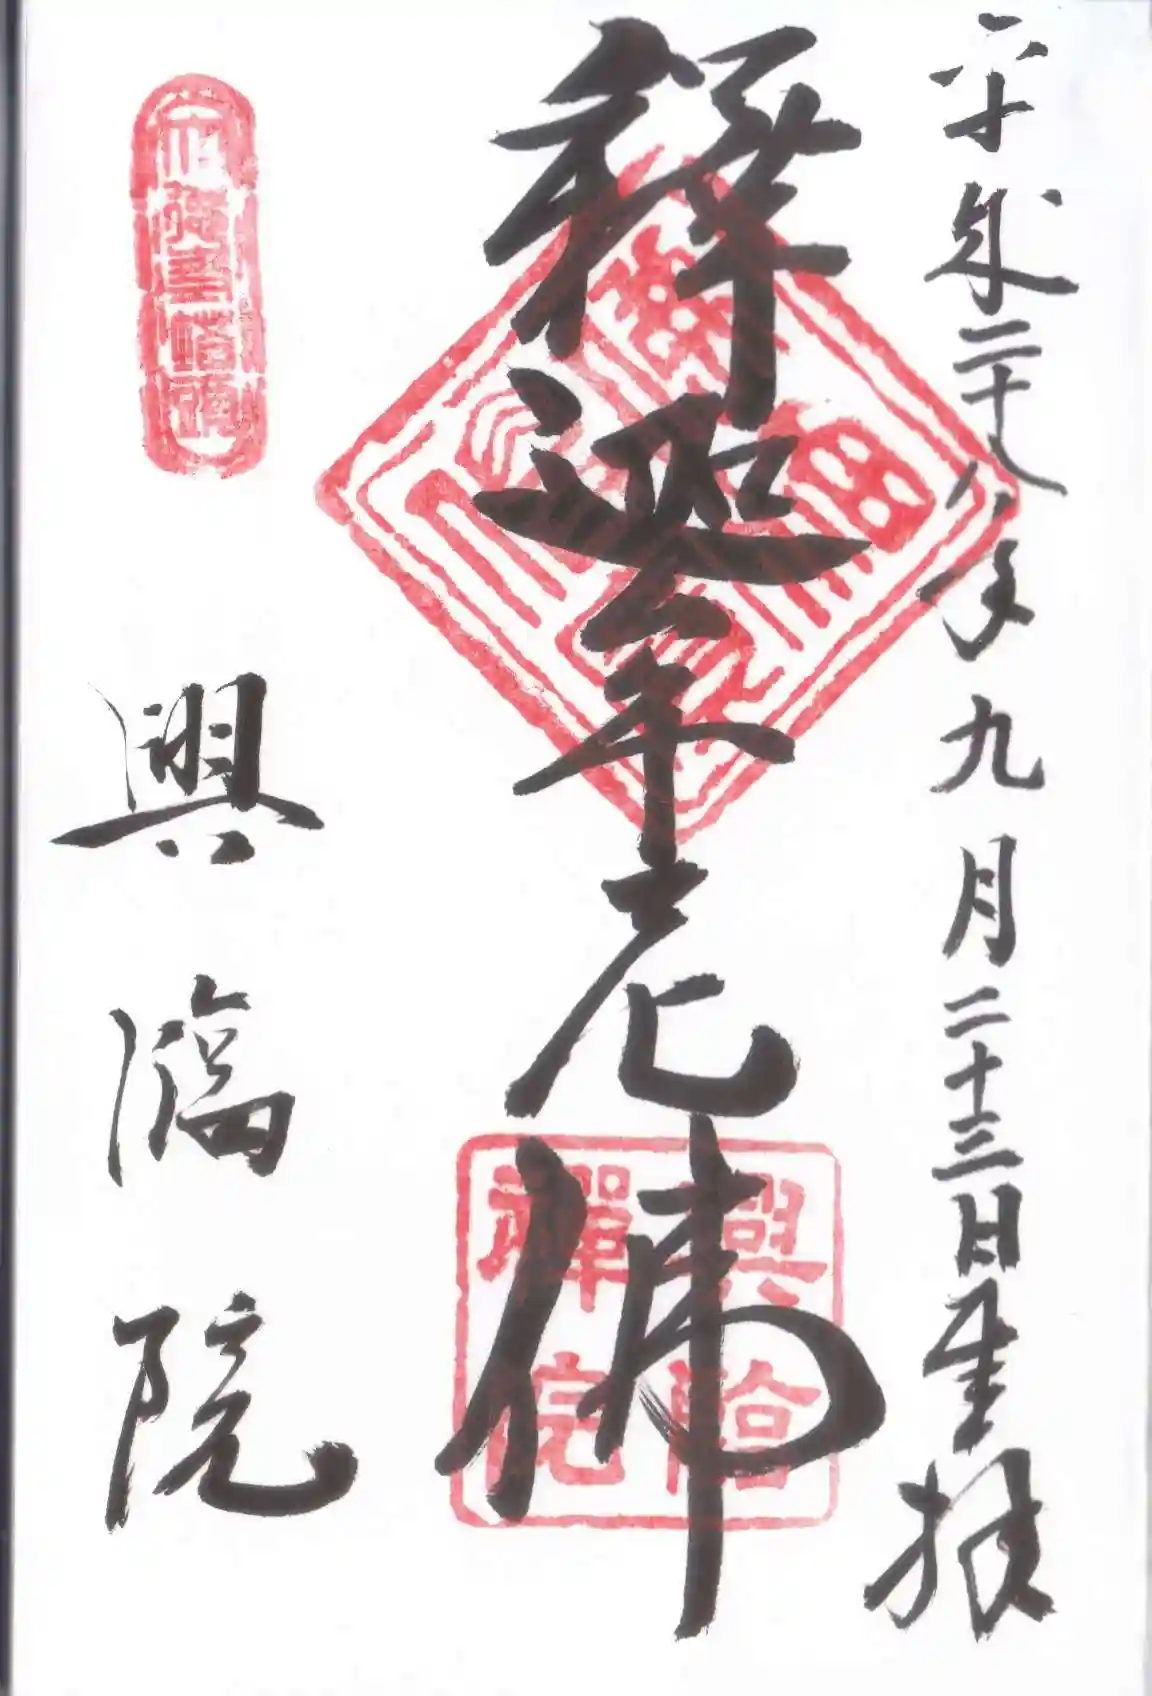 平成二十八年九月二十三日奉拝
釋迦牟尼佛
興臨院
興臨禅院